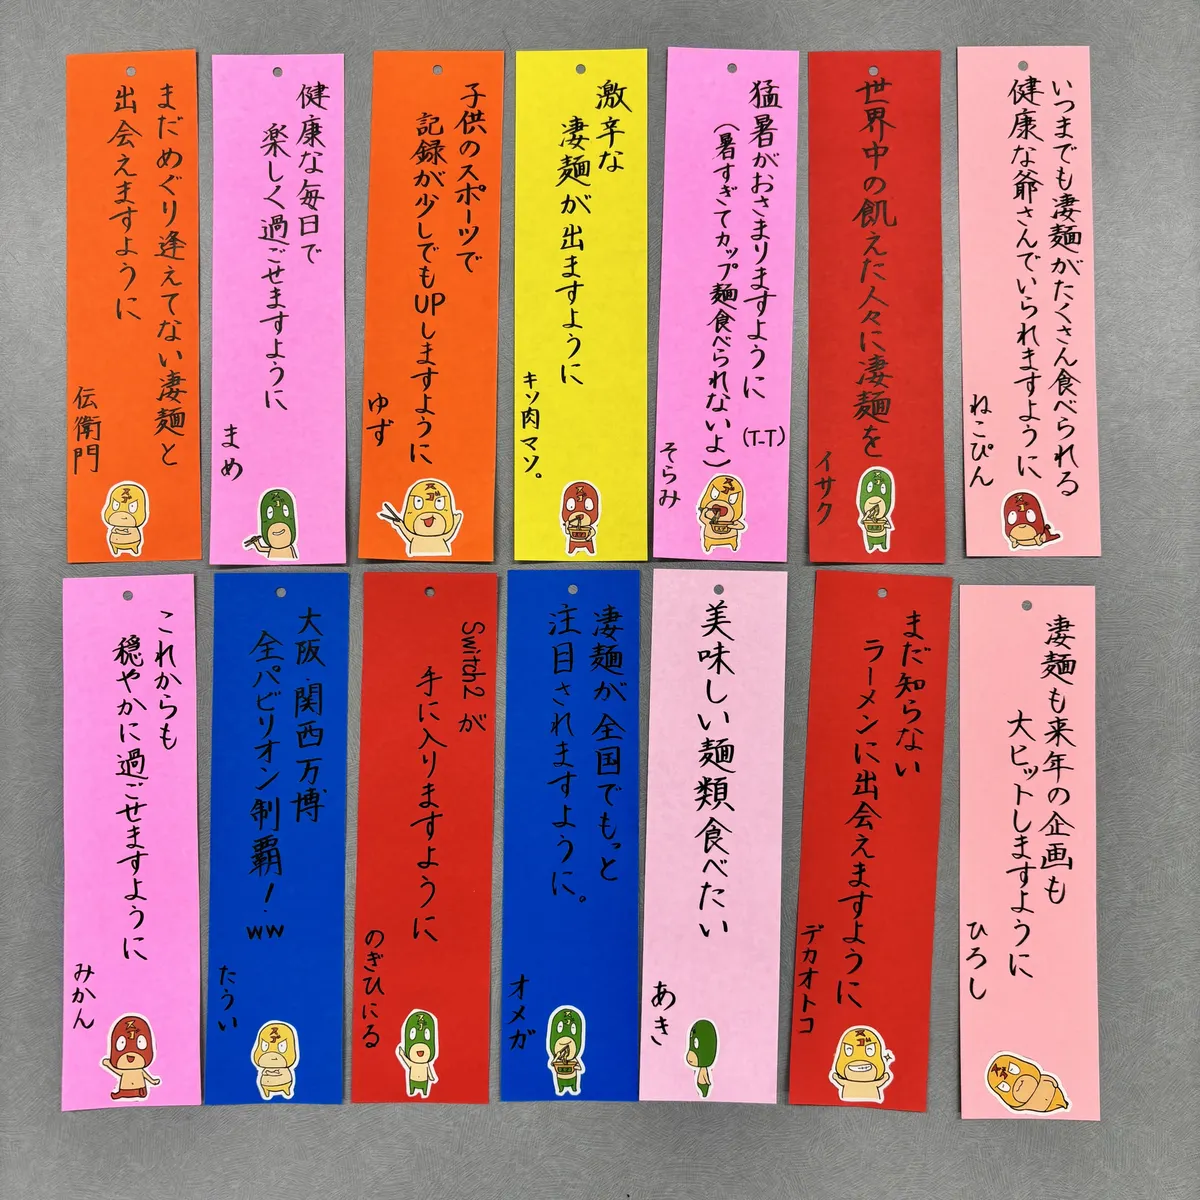 いつまでも凄麺がたくさん食べられる
健康な爺さんでいられますように
ねこぴん
世界中の飢えた人々に凄麺を
イサク
猛暑がおさまりますように
(T-T)
(暑すぎてカップ麺食べられないよ)
そらみ
激辛な
凄麺が出ますように
キソ肉マソ。
子供のスポーツで
記録が少しでもUPしますように
ゆず
健康な毎日で
楽しく過ごせますように
まめ
まだめぐり逢えてない凄麺と
出会えますように
伝衛門
凄麺も来年の企画も
大ヒットしますように
ひろし
まだ知らない
ラーメンに出会えますように
デカオトコ
美味しい麺類食べたい
あき
凄麺が全国でもっと
注目されますように。
オメガ
Switch2が
手に入りますように
のぎひにる
大阪・関西万博
全パビリオン制覇!ww
たうい
これからも
穏やかに過ごせますように
みかん